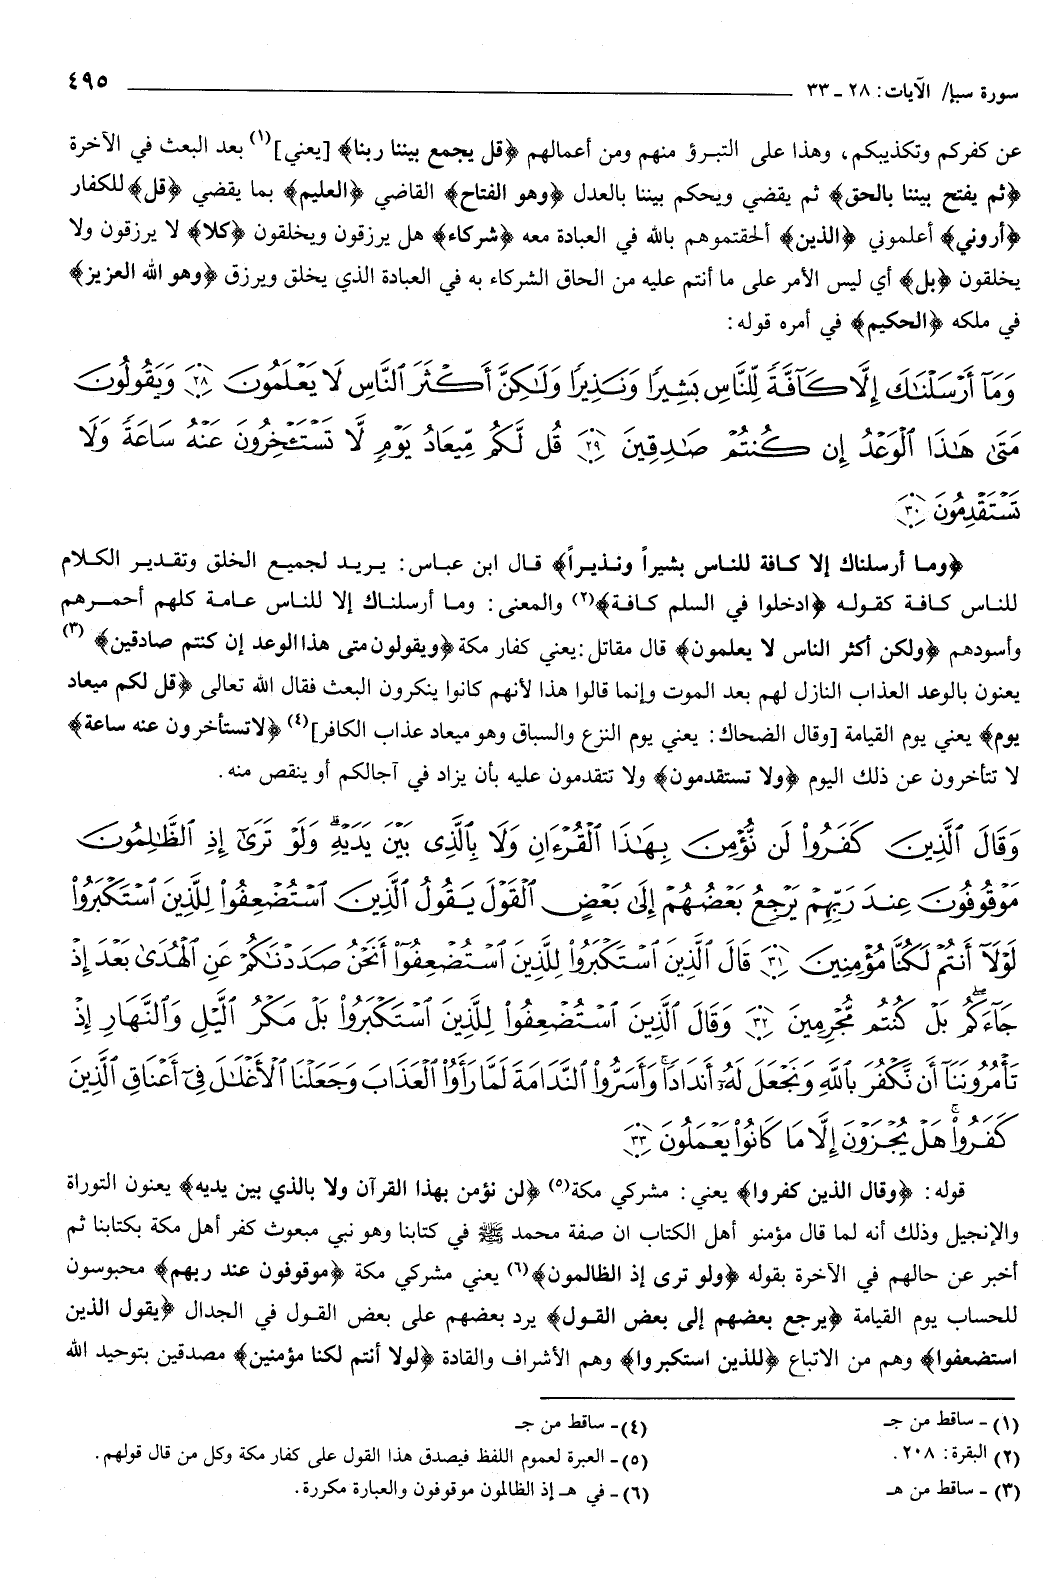 سورة سبإ/ الآيات: ٢٨ ـ ٣٣ ٤٩٥
عن كفركم وتكذيبكم، وهذا على التبرؤ منهم ومن أعمالهم ﴿قل يجمع بيننا ربنا﴾ [يعني](١) بعد البعث في الآخرة
﴿ثم يفتح بيننا بالحق﴾ ثم يقضي ويحكم بيننا بالعدل ﴿وهو الفتاح﴾ القاضي ﴿العليم﴾ بما يقضي ﴿قل﴾ للكفار
﴿أروني﴾ أعلموني ﴿الذين﴾ ألحقتموهم بالله في العبادة معه ﴿شركاء﴾ هل يرزقون ويخلقون ﴿كلا﴾ لا يرزقون ولا
يخلقون ﴿بل﴾ أي ليس الأمر على ما أنتم عليه من الحاق الشركاء به في العبادة الذي يخلق ويرزق ﴿وهو الله العزيز﴾
في ملكه ﴿الحكيم﴾ في أمره قوله:
وَمَآ أَرْسَلْنَٰكَ إِلَّا كَآفَّةً لِّلنَّاسِ بَشِيرًا وَنَذِيرًا وَلَٰكِنَّ أَكْثَرَ ٱلنَّاسِ لَا يَعْلَمُونَ ٢٨ وَيَقُولُونَ
مَتَىٰ هَٰذَا ٱلْوَعْدُ إِن كُنتُمْ صَٰدِقِينَ ٢٩ قُل لَّكُم مِّيعَادُ يَوْمٍ لَّا تَسْتَـْٔخِرُونَ عَنْهُ سَاعَةً وَلَا
تَسْتَقْدِمُونَ ٣٠
﴿وما أرسلناك إلا كافة للناس بشيراً ونذيراً﴾ قال ابن عباس: يريد لجميع الخلق وتقدير الكلام
للناس كافة كقوله ﴿ادخلوا في السلم كافة﴾(٢) والمعنى: وما أرسلناك إلا للناس عامة كلهم أحمرهم
وأسودهم ﴿ولكن أكثر الناس لا يعلمون﴾ قال مقاتل:يعني كفار مكة﴿ويقولون متى هذا الوعد إن كنتم صادقين﴾ (٣)
يعنون بالوعد العذاب النازل لهم بعد الموت وإنما قالوا هذا لأنهم كانوا ينكرون البعث فقال الله تعالى ﴿قل لكم ميعاد
يوم﴾ يعني يوم القيامة [وقال الضحاك: يعني يوم النزع والسباق وهو ميعاد عذاب الكافر](٤) ﴿لاتستأخرون عنه ساعة﴾
لا تتأخرون عن ذلك اليوم ﴿ولا تستقدمون﴾ ولا تتقدمون عليه بأن يزاد في آجالكم أو ينقص منه.
وَقَالَ ٱلَّذِينَ كَفَرُوا۟ لَن نُّؤْمِنَ بِهَٰذَا ٱلْقُرْءَانِ وَلَا بِٱلَّذِى بَيْنَ يَدَيْهِ ۗ وَلَوْ تَرَىٰٓ إِذِ ٱلظَّٰلِمُونَ
مَوْقُوفُونَ عِندَ رَبِّهِمْ يَرْجِعُ بَعْضُهُمْ إِلَىٰ بَعْضٍ ٱلْقَوْلَ يَقُولُ ٱلَّذِينَ ٱسْتُضْعِفُوا۟ لِلَّذِينَ ٱسْتَكْبَرُوا۟
لَوْلَآ أَنتُمْ لَكُنَّا مُؤْمِنِينَ ٣١ قَالَ ٱلَّذِينَ ٱسْتَكْبَرُوا۟ لِلَّذِينَ ٱسْتُضْعِفُوٓا۟ أَنَحْنُ صَدَدْنَٰكُمْ عَنِ ٱلْهُدَىٰ بَعْدَ إِذْ
جَآءَكُم ۖ بَلْ كُنتُم مُّجْرِمِينَ ٣٢ وَقَالَ ٱلَّذِينَ ٱسْتُضْعِفُوا۟ لِلَّذِينَ ٱسْتَكْبَرُوا۟ بَلْ مَكْرُ ٱلَّيْلِ وَٱلنَّهَارِ إِذْ
تَأْمُرُونَنَآ أَن نَّكْفُرَ بِٱللَّهِ وَنَجْعَلَ لَهُۥٓ أَندَادًا ۚ وَأَسَرُّوا۟ ٱلنَّدَامَةَ لَمَّا رَأَوُا۟ ٱلْعَذَابَ وَجَعَلْنَا ٱلْأَغْلَٰلَ فِىٓ أَعْنَاقِ ٱلَّذِينَ
كَفَرُوا۟ ۚ هَلْ يُجْزَوْنَ إِلَّا مَا كَانُوا۟ يَعْمَلُونَ ٣٣
قوله: ﴿وقال الذين كفروا﴾ يعني: مشركي مكة(٥) ﴿لن نؤمن بهذا القرآن ولا بالذي بين يديه﴾ يعنون التوراة
والإنجيل وذلك أنه لما قال مؤمنو أهل الكتاب ان صفة محمد ﷺ في كتابنا وهو نبي مبعوث كفر أهل مكة بكتابنا ثم
أخبر عن حالهم في الآخرة بقوله ﴿ولو ترى إذ الظالمون﴾(٦) يعني مشركي مكة ﴿موقوفون عند ربهم﴾ محبوسون
للحساب يوم القيامة ﴿يرجع بعضهم إلى بعض القول﴾ يرد بعضهم على بعض القول في الجدال ﴿يقول الذين
استضعفوا﴾ وهم من الاتباع ﴿للذين استكبروا﴾ وهم الأشراف والقادة ﴿لولا أنتم لكنا مؤمنين﴾ مصدقين بتوحيد الله
(١) - ساقط من جـ
(٢) البقرة: ٢٠٨.
(٣) - ساقط من هـ
(٤) - ساقط من جـ
(٥) - العبرة لعموم اللفظ فيصدق هذا القول على كفار مكة وكل من قال قولهم.
(٦) - في هـ إذ الظالمون موقوفون والعبارة مكررة.